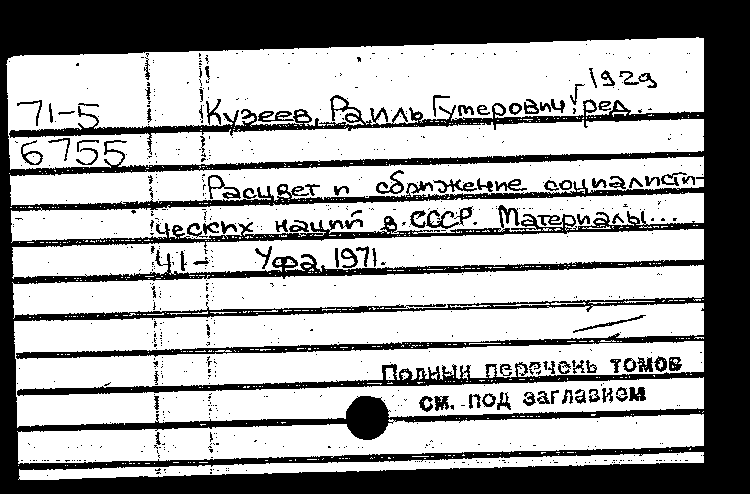 1929
71-5 Кузеев, Раиль Гумерович, ред...
6755
Расцвет и сближение социалисти-
ческих наций в СССР. Материалы...
Ч.1- Уфа, 1971.
Полный перечень томов
см. под заглавием